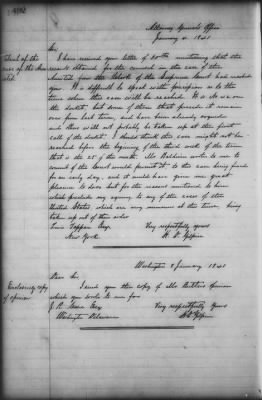 Attorney General's Office
January 4 1841
Sir,
Trial of the case of the Amistad
I have received your letter of 30th mentioning that the
record obtained for the counsel in the case of the
Amistad from the Clerk of the Supreme Court had reached
you. It is difficult to speak with precision as to the
time when this case will be reached. It is No on
the docket, but some of those that precede it remain
over from last term, and have been already argued
and those will not probably be taken up at the first
call of the docket. I should think this case might not be
reached before the beginning of the third week of the term
that is the 25 of the month. Mr Baldwin wrote to me to
if the Court would permit it to the case being fixed
for an early day, and it would have given me great
pleasure to do so but for the reason mentioned to him
which precludes my agreeing to any of the cases of the
United States which are very numerous at the term, being
taken up out of their order
Very respectfully yours
Lewis Tappan Esq.
H. D. Gilpin
New York
Washington 8 January 1841
Dear Sir,
Enclosing copy of opinion
I send you the copy of Mr Butler's opinion
which you wrote to me for
Very respectfully Yours
H D Gilpin
Esq
Wilmington Delaware